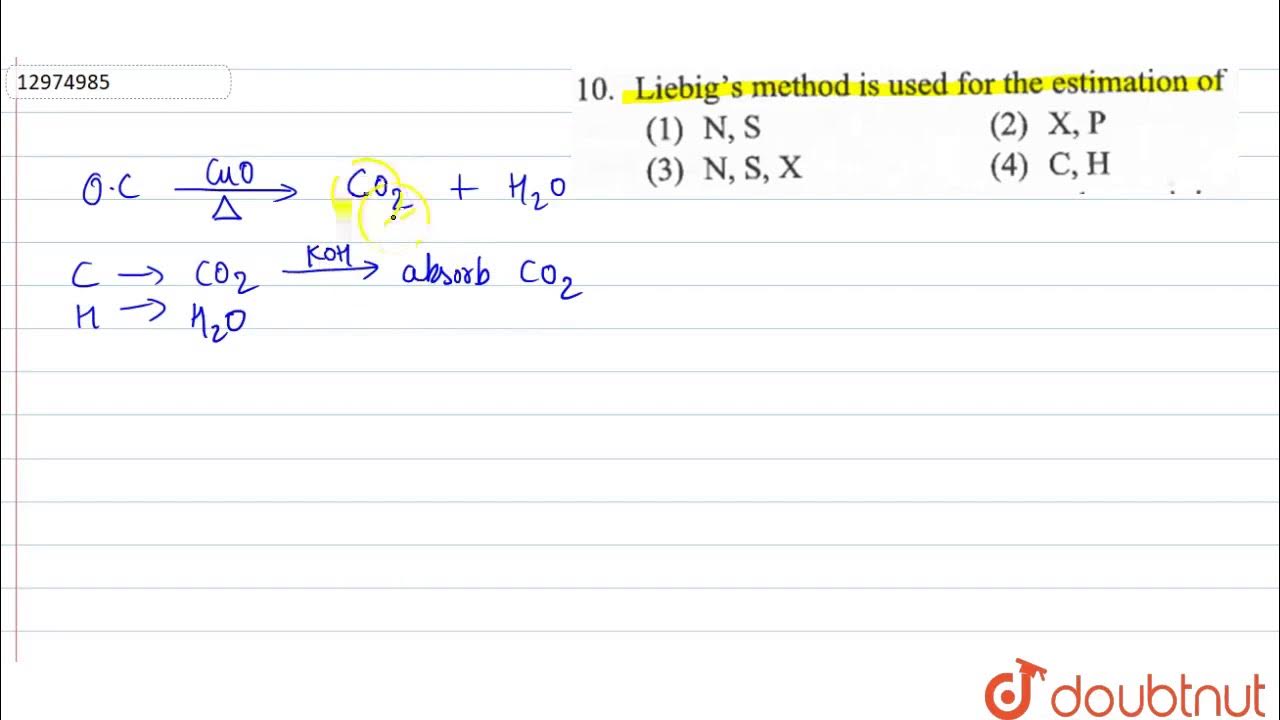 12974985
10. Liebig's method is used for the estimation of
(1) N, S (2) X, P
(3) N, S, X (4) C, H
O.C —CuO/Δ→ CO₂ + H₂O
C → CO₂ —KOH→ absorb CO₂
H → H₂O
doubtnut